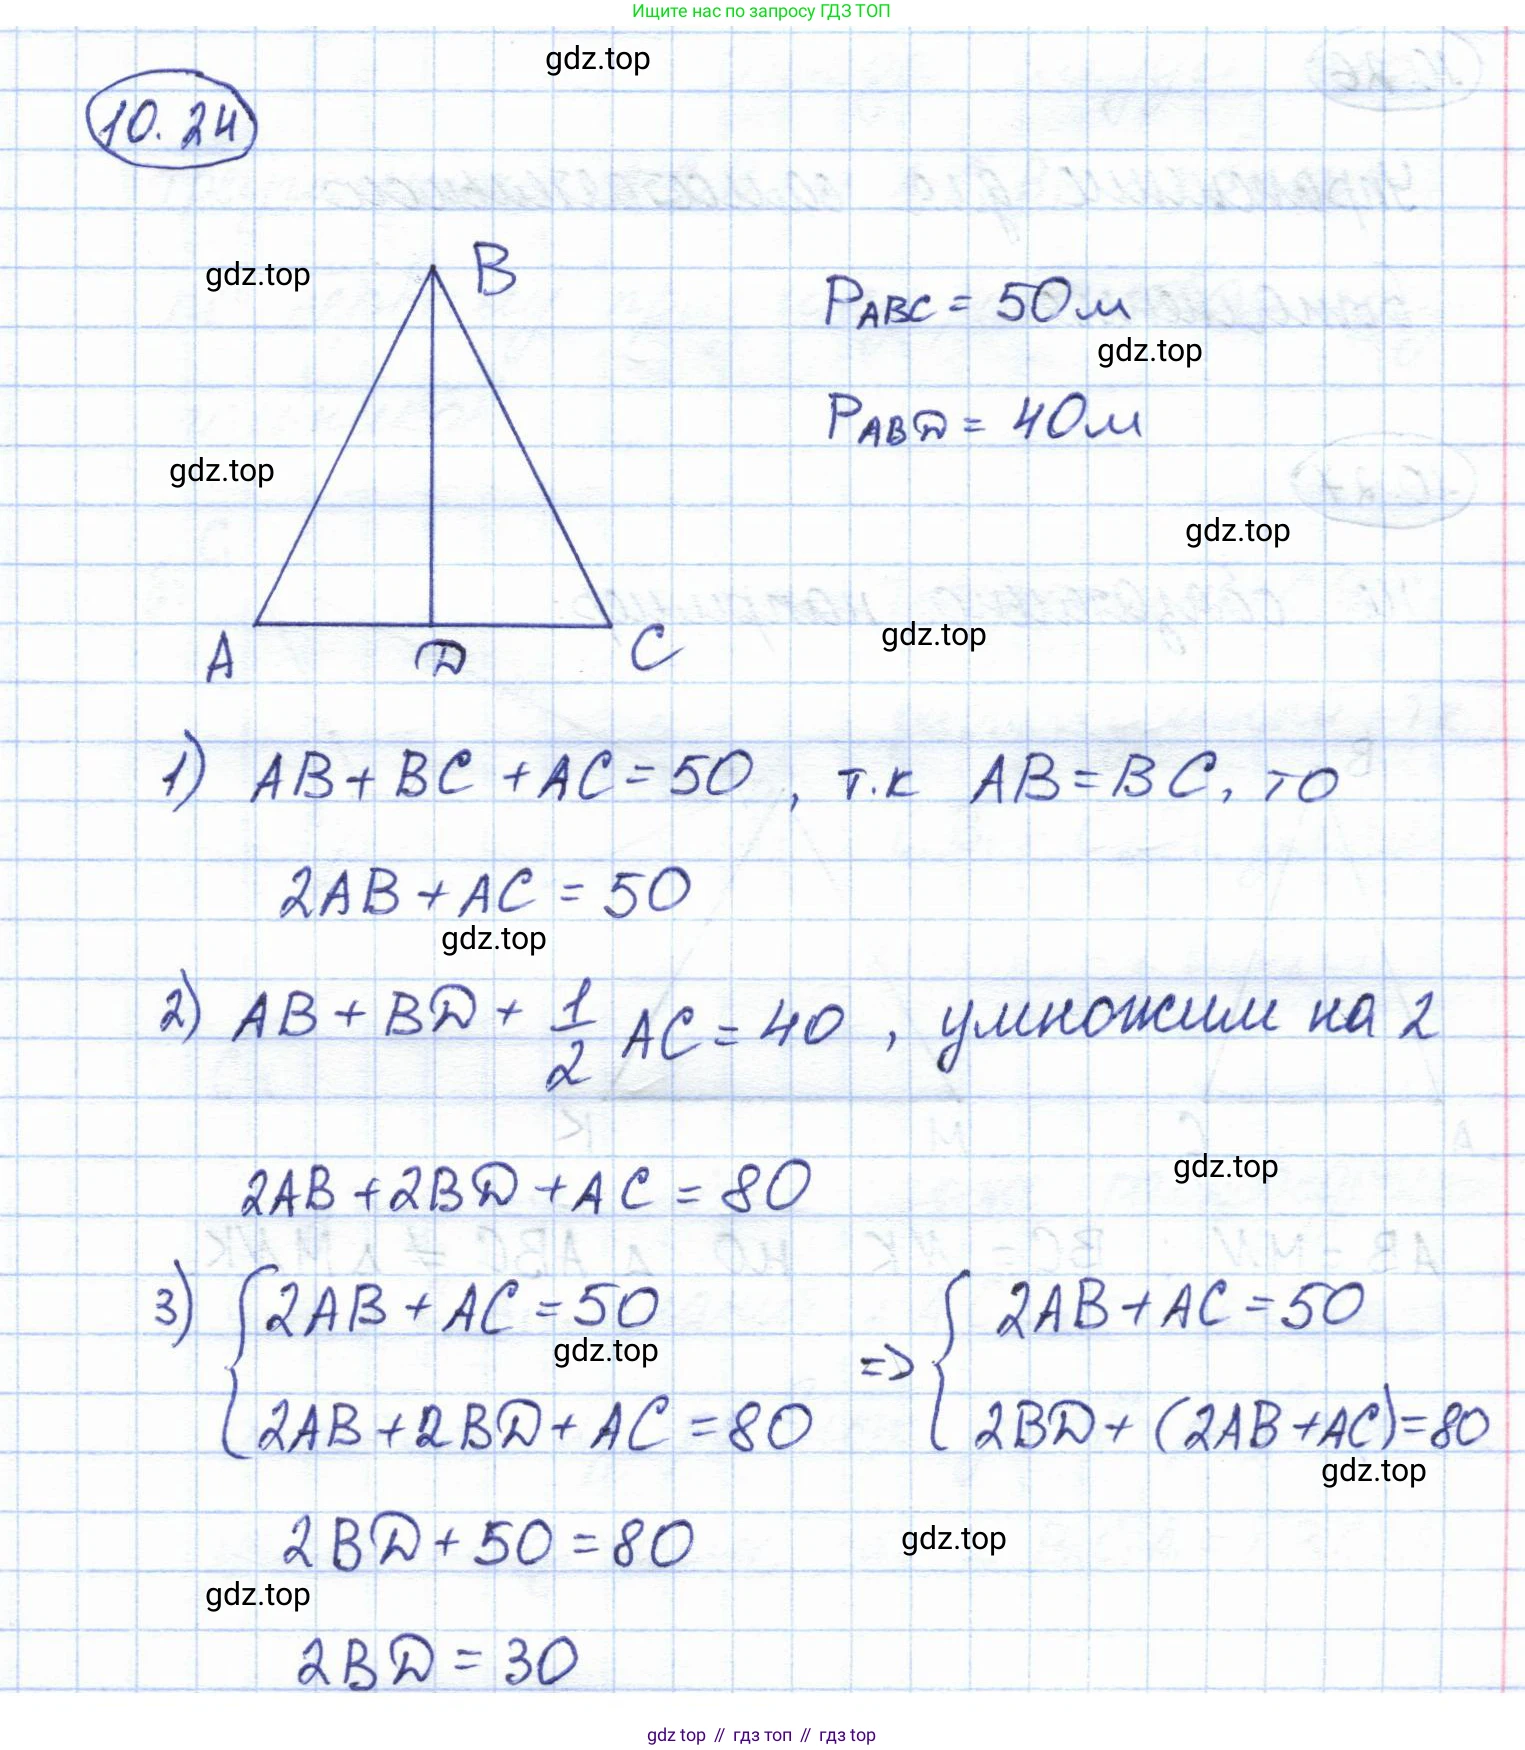 Ищите нас по запросу ГДЗ ТОП
gdz.top
10.24
gdz.top
B
P_ABC = 50м
gdz.top
P_ABD = 40м
gdz.top
gdz.top
gdz.top
A
D
C
1) AB + BC + AC = 50, т.к AB = BC, то
2AB + AC = 50
gdz.top
2) AB + BD + 1/2 AC = 40, умножим на 2
gdz.top
2AB + 2BD + AC = 80
3) { 2AB + AC = 50 => { 2AB + AC = 50
gdz.top
2AB + 2BD + AC = 80 2BD + (2AB + AC) = 80
gdz.top
2BD + 50 = 80
gdz.top
gdz.top
2BD = 30
gdz top // гдз топ // гдз top